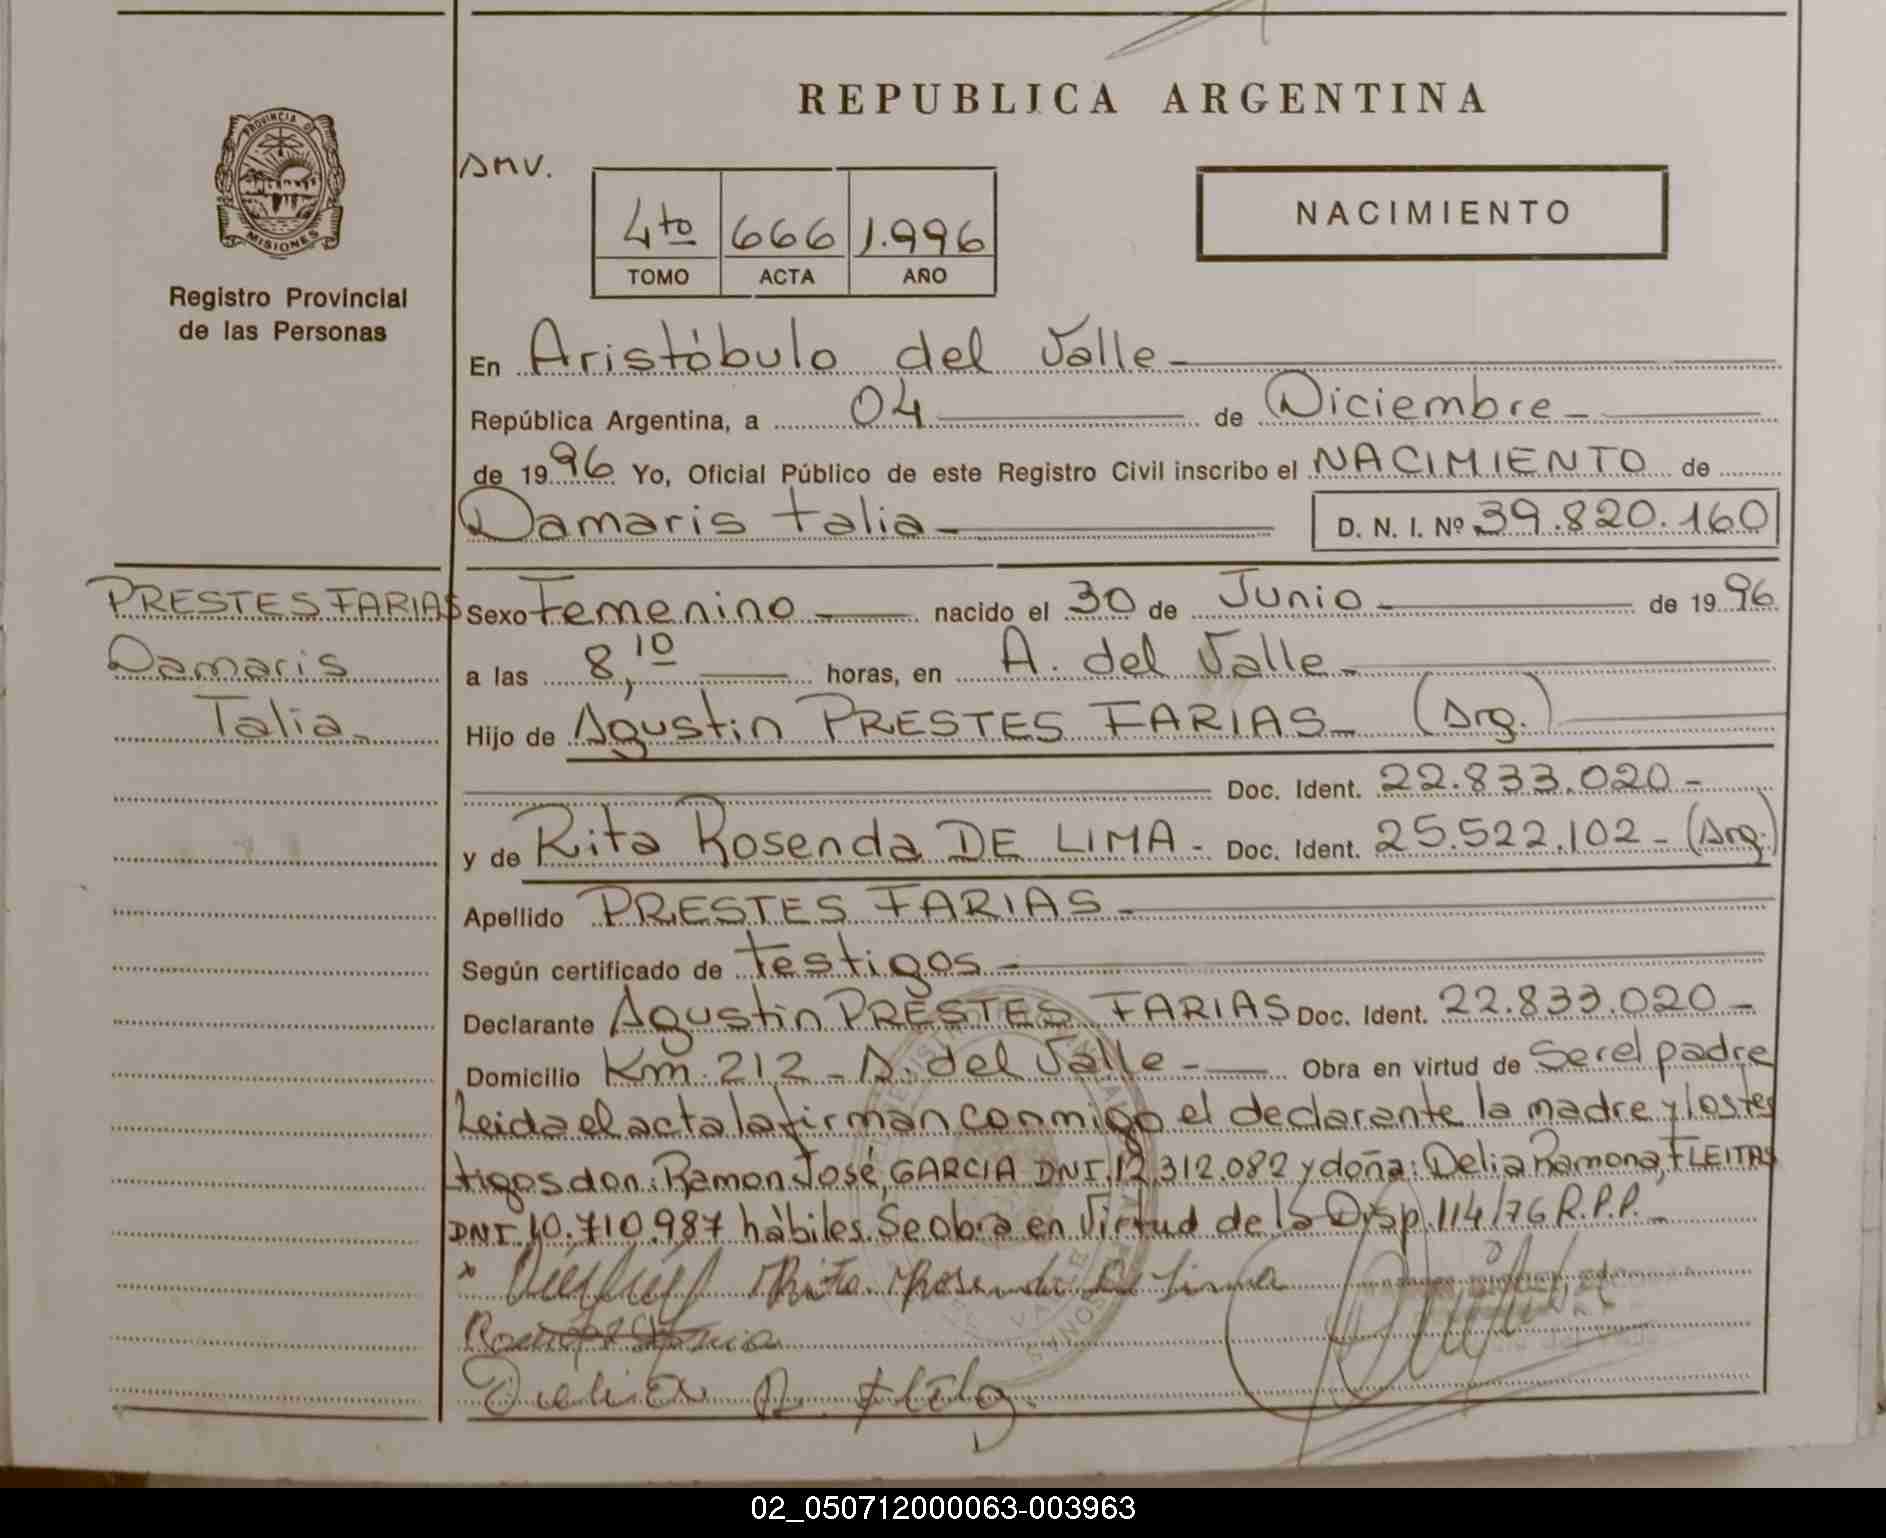 REPUBLICA ARGENTINA
PROVINCIA DE
MISIONES
Registro Provincial
de las Personas
4to 666 1.996
TOMO ACTA AÑO
NACIMIENTO
En Aristóbulo del Valle
República Argentina, a 04 de Diciembre
de 1996 Yo, Oficial Público de este Registro Civil inscribo el NACIMIENTO de
Damaris Talia D. N. I. Nº 39.820.160
PRESTES FARIAS
Damaris
Talia
Sexo Femenino nacido el 30 de Junio de 1996
a las 8,10 horas, en A. del Valle
Hijo de Agustin PRESTES FARIAS (Arg.)
Doc. Ident. 22.833.020
y de Rita Rosenda DE LIMA Doc. Ident. 25.522.102 (Arg.)
Apellido PRESTES FARIAS
Según certificado de testigos
Declarante Agustin PRESTES FARIAS Doc. Ident. 22.833.020
Domicilio Km. 212 - A. del Valle Obra en virtud de Ser el padre
Leida el acta la firman conmigo el declarante la madre y los tes
tigos don: Ramon José, GARCIA DNI. 12.312.082 y doña: Delia Ramona, FLEITAS
DNI. 10.710.987 hàbiles. Se obra en Virtud de la Disp. 114/76 R.P.P.
Rita Rosenda De Lima
02_050712000063-003963